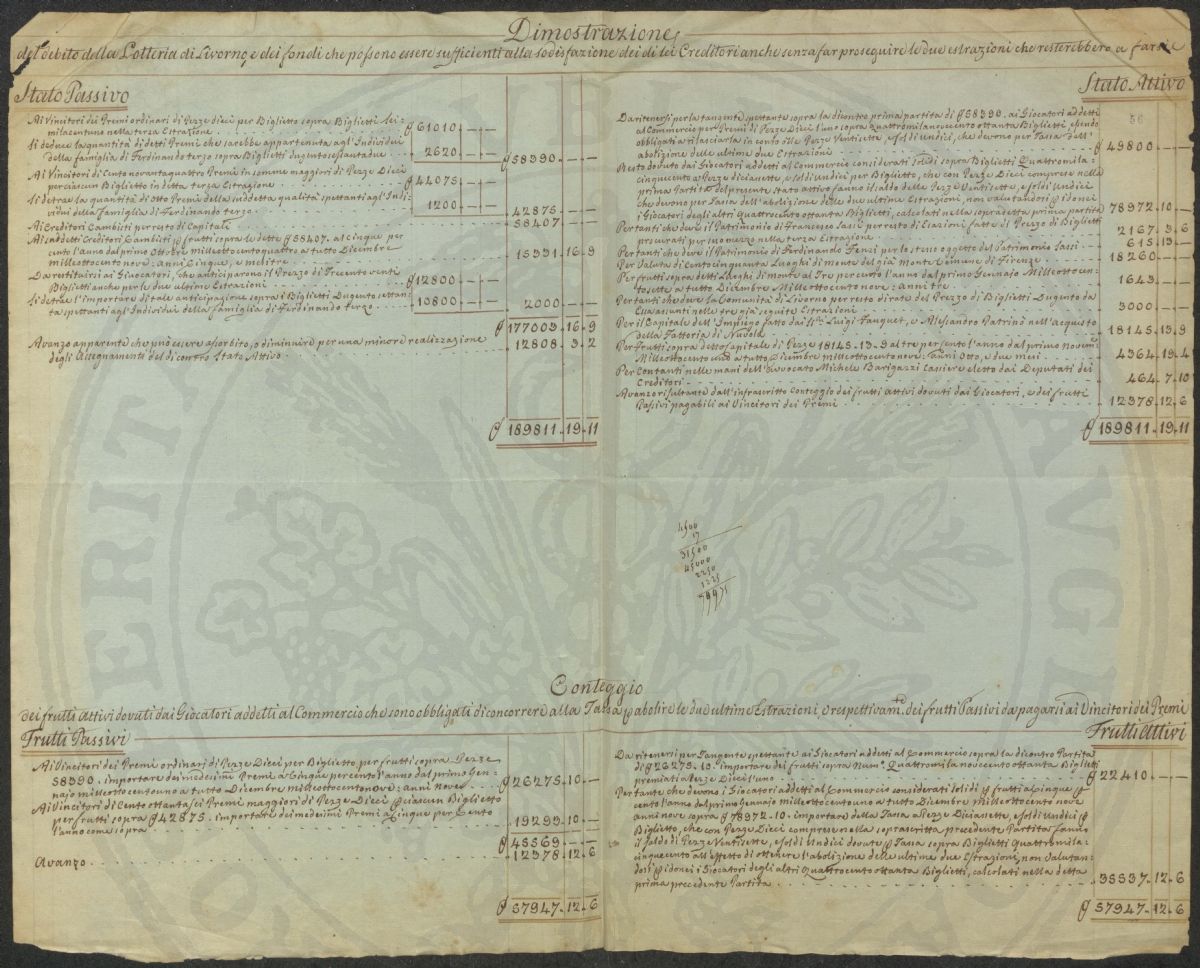 Dimostrazione
del debito della Lotteria di Livorno, e dei fondi che possono essere sufficienti alla sodisfazione dei di lei Creditori anche senza far proseguire le due estrazioni che resterebbero a farsi
Stato Passivo
Ai Vincitori dei Premi ordinari di Pezze dieci per Biglietto sopra Biglietti Sei-
milacentuno nella terza Estrazione . . . ₽ 61010 . — . —
Si deduce la quantità di detti Premi che sarebbe appartenuta agl'Individui
della famiglia di Ferdinando terzo sopra Biglietti dugentosessantadue . — 2620 . — . — ₽ 58390 . — . —
Ai Vincitori di Cento novantaquattro Premi in somme maggiori di Pezze Dieci
per ciascun Biglietto in detta terza Estrazione . . . ₽ 44075 . — . —
Si detrae la quantità di otto Premi della suddetta qualità spettanti agl'Indi-
vidui della Famiglia di Ferdinando terzo . . . 1200 . — . — 42875 . — . —
Ai Creditori Cambisti per resto di Capitale . . . 58407 . — . —
Ai suddetti Creditori Cambisti ₽ frutti sopra le dette ₽ 58407. al cinque per
cento l'anno dal primo Ottobre Milleottocentoquattro a tutto Dicembre
milleottocento nove: anni Cinque, e mesi tre . . . 15331 . 16 . 9
Da restituirsi ai Giuocatori, che anticiparono il Prezzo di Trecento venti
Biglietti anche per le due ultime Estrazioni . . . ₽ 12800 . — . —
Si detrae l'importare di tale anticipazione sopra i Biglietti Dugento settan-
ta spettanti agl'Individui della Famiglia di Ferdinando terzo . . . 10800 . — . — 2000 . — . —
₽ 177003 . 16 . 9
Avanzo apparente che può essere assorbito, o diminuire per una minore realizzazione
degli Assegnamenti del di contro Stato Attivo . . . 12808 . 3 . 2
₽ 189811 . 19 . 11
Stato Attivo
56
Da ritenersi per la tangente spettante sopra la dicontro prima partita di ₽ 58390. ai Giocatori addetti
al Commercio per Premi di Pezze Dieci l'uno sopra quattromilanovecento ottanta Biglietti essendo
obbligati a rilasciarla in conto alle Pezze Ventisette, e soldi undici, che devono per Tassa dell'
abolizione delle ultime due Estrazioni . . . ₽ 49800 . — . —
Resto dovuto dai Giocatori addetti al Commercio considerati solidi sopra Biglietti Quattromila-
cinquecento a Pezze diciasette, e soldi undici per Biglietto, che con Pezze Dieci comprese nella
prima Partita del presente stato attivo fanno il saldo delle Pezze Ventisette, e soldi Undici
che devono per Tassa dell'abolizione delle due ultime Estrazioni, non valutandosi ₽ idonei
i Giocatori degli altri Quattrocento ottanta Biglietti, calcolati nella sopradetta prima partita 78972 . 10 . —
Per tanti che deve il Patrimonio di Francesco Sassi per resto di Esazioni fatte di Prezzo di Biglietti
procurati per suo mezzo nella terza Estrazione . . . 2167 . 3 . 6
Per tanti che deve il Patrimonio di Ferdinando Fenzi per lo stesso oggetto del Patrimonio Sassi . 615 . 13 . —
Per Valuta di Cento cinquanta Luoghi di monte del già monte Comune di Firenze . . . 18260 . — . —
Per frutti sopra detti Luoghi di monte al Tre per cento l'anno dal primo Gennaio Milleotto cen-
to sette a tutto Dicembre Milleottocento nove: Anni tre . . . 1643 . — . —
Per tanti che deve la Comunità di Livorno per resto di rate del Prezzo di Biglietti Dugento da
Essa assunti nelle tre già seguite Estrazioni . . . 3000 . — . —
Per il Capitale dell'Impiego fatto dai SS.ri Luigi Fauquet, e Alesandro Patrinò nell'acquisto
della Fattoria di Nugola . . . 18145 . 13 . 9
Per frutti sopra detto Capitale di Pezze 18145 . 13 . 9 al tre per cento l'anno dal primo Novem.
Milleottocento uno a tutto Dicembre milleottocento nove: anni Otto, e due mesi . . . 4364 . 19 . 4
Per Contanti nelle mani dell'Avvocato Michele Barigazzi Cassiere eletto dai Deputati dei
Creditori . . . 464 . 7 . 10
Avanzo risultante dall'infrascritto Conteggio dei frutti attivi dovuti dai Giocatori, e dei frutti
Passivi pagabili ai Vincitori dei Premi . . . 12378 . 12 . 6
₽ 189811 . 19 . 11
4500
17
31500
45000
2250
1225
Conteggio
dei frutti Attivi dovuti dai Giocatori addetti al Commercio che sono obbligati di concorrere alla Tassa ₽ abolire le due ultime Estrazioni, e respettivam.te dei frutti Passivi da pagarsi ai Vincitori dei Premi
Frutti Passivi
Ai Vincitori dei Premi ordinari di Pezze Dieci per Biglietto per frutti sopra Pezze
58390. importare dei medesimi Premi a Cinque per cento l'anno dal primo Gen-
najo milleottocentouno a tutto Dicembre milleottocentonove: anni Nove . . . ₽ 26275 . 10 . —
Ai Vincitori di Cento ottantasei Premi maggiori di Pezze Dieci ₽ ciascun Biglietto
per frutti sopra ₽ 42875. importare dei medesimi Premi a Cinque per Cento
l'anno come sopra . . . 19293 . 10 . —
₽ 45569 . — . —
Avanzo . . . 12378 . 12 . 6
₽ 57947 . 12 . 6
Frutti Attivi
Da ritenersi per Tangente spettante ai Giocatori addetti al Commercio sopra la dicontro Partita
di ₽ 26275 . 10. importare dei frutti sopra Num.o Quattromila novecento ottanta Biglietti
premiati a Pezze Dieci l'uno . . . ₽ 22410 . — . —
Per tante che devono i Giocatori addetti al Commercio considerati solidi ₽ frutti a Cinque ₽
cento l'anno dal primo Gennajo Milleottocento uno a tutto Dicembre Milleottocento nove
anni nove sopra ₽ 78972 . 10. importare della Tassa a Pezze Diciasette, e soldi Undici ₽
Biglietto, che con Pezze Dieci comprese nella soprascritta precedente Partita fanno
il saldo di Pezze Ventisette, e soldi Undici dovute ₽ Tassa sopra Biglietti Quattromila-
cinquecento all'effetto di ottenere l'abolizione delle ultime due Estrazioni, non Valutan-
dosi ₽ idonei i Giocatori degli altri Quattrocento ottanta Biglietti, calcolati nella detta
prima precedente Partita . . . 35537 . 12 . 6
₽ 57947 . 12 . 6